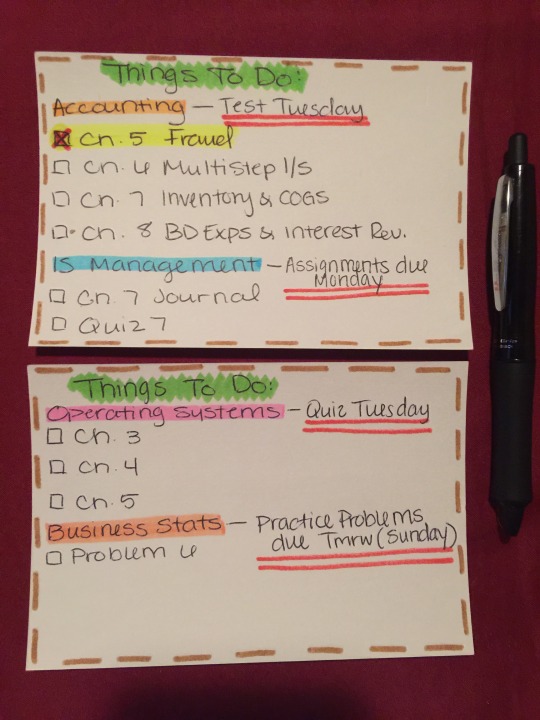 Things To Do:
Accounting — Test Tuesday
☒ Ch. 5 Fraud
☐ Ch. 6 Multistep I/S
☐ Ch. 7 Inventory & COGS
☐ Ch. 8 BD Exps & Interest Rev.
IS Management — Assignments due
Monday
☐ Ch. 7 Journal
☐ Quiz 7
Things To Do:
Operating Systems — Quiz Tuesday
☐ Ch. 3
☐ Ch. 4
☐ Ch. 5
Business Stats — Practice Problems
due Tmrw (Sunday)
☐ Problem 6